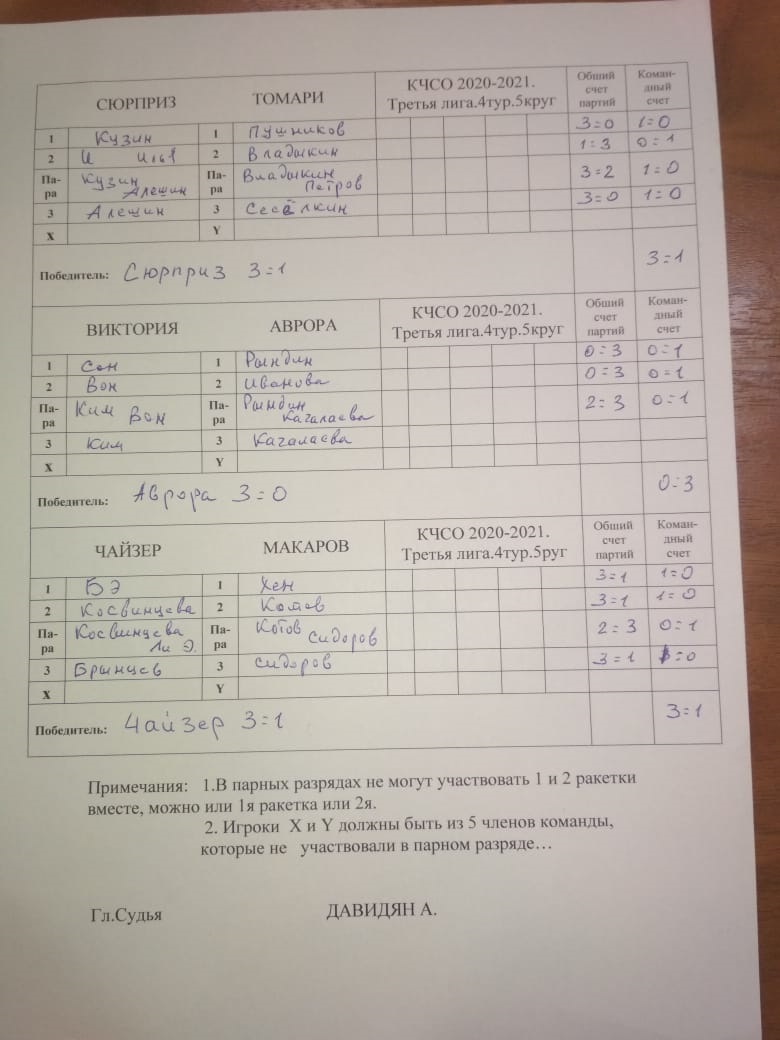 СЮРПРИЗ ТОМАРИ КЧСО 2020-2021. Третья лига.4тур.5круг Общий счет партий Коман- дный счет
1 Кузин 1 Пушников 3=0 1=0
2 2 Владыкин 1=3 0=1
Па- ра Кузин Алешин Па- ра Владыкин Петров 3=2 1=0
3 Алешин 3 3=0 1=0
X Y
Победитель: Сюрприз 3=1 3=1
ВИКТОРИЯ АВРОРА КЧСО 2020-2021. Третья лига.4тур.5круг Общий счет партий Коман- дный счет
1 Сон 1 Рындин 0=3 0=1
2 Вон 2 Иванова 0=3 0=1
Па- ра Ким Вон Па- ра Рындин Кагалаева 2=3 0=1
3 Ким 3 Кагалаева
X Y
Победитель: Аврора 3=0 0=3
ЧАЙЗЕР МАКАРОВ КЧСО 2020-2021. Третья лига.4тур.5руг Общий счет партий Коман- дный счет
1 БЭ 1 Хен 3=1 1=0
2 Косвинцева 2 Котов 3=1 1=0
Па- ра Косвинцева Ли Э. Па- ра Котов Сидоров 2=3 0=1
3 Брынцев 3 Сидоров 3=1 1=0
X Y
Победитель: Чайзер 3=1 3=1
Примечания: 1.В парных разрядах не могут участвовать 1 и 2 ракетки
вместе, можно или 1я ракетка или 2я.
2. Игроки X и Y должны быть из 5 членов команды,
которые не участвовали в парном разряде…
Гл.Судья ДАВИДЯН А.